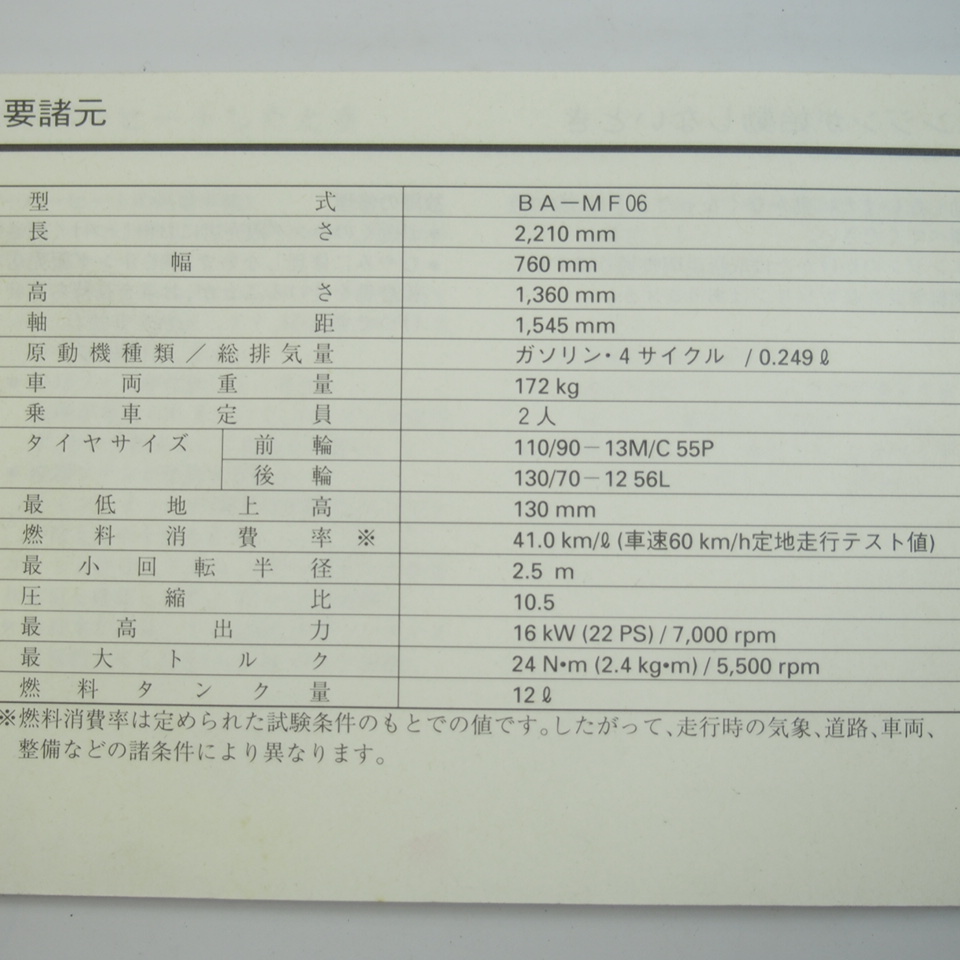 要諸元
型式 BA-MF06
長さ 2,210 mm
幅 760 mm
高さ 1,360 mm
軸距 1,545 mm
原動機種類／総排気量 ガソリン・4サイクル / 0.249 ℓ
車両重量 172 kg
乗車定員 2人
タイヤサイズ 前輪 110/90－13M/C 55P
後輪 130/70－12 56L
最低地上高 130 mm
燃料消費率※ 41.0 km/ℓ (車速60 km/h定地走行テスト値)
最小回転半径 2.5 m
圧縮比 10.5
最高出力 16 kW (22 PS) / 7,000 rpm
最大トルク 24 N•m (2.4 kg•m) / 5,500 rpm
燃料タンク量 12 ℓ
※燃料消費率は定められた試験条件のもとでの値です。したがって、走行時の気象、道路、車両、
整備などの諸条件により異なります。